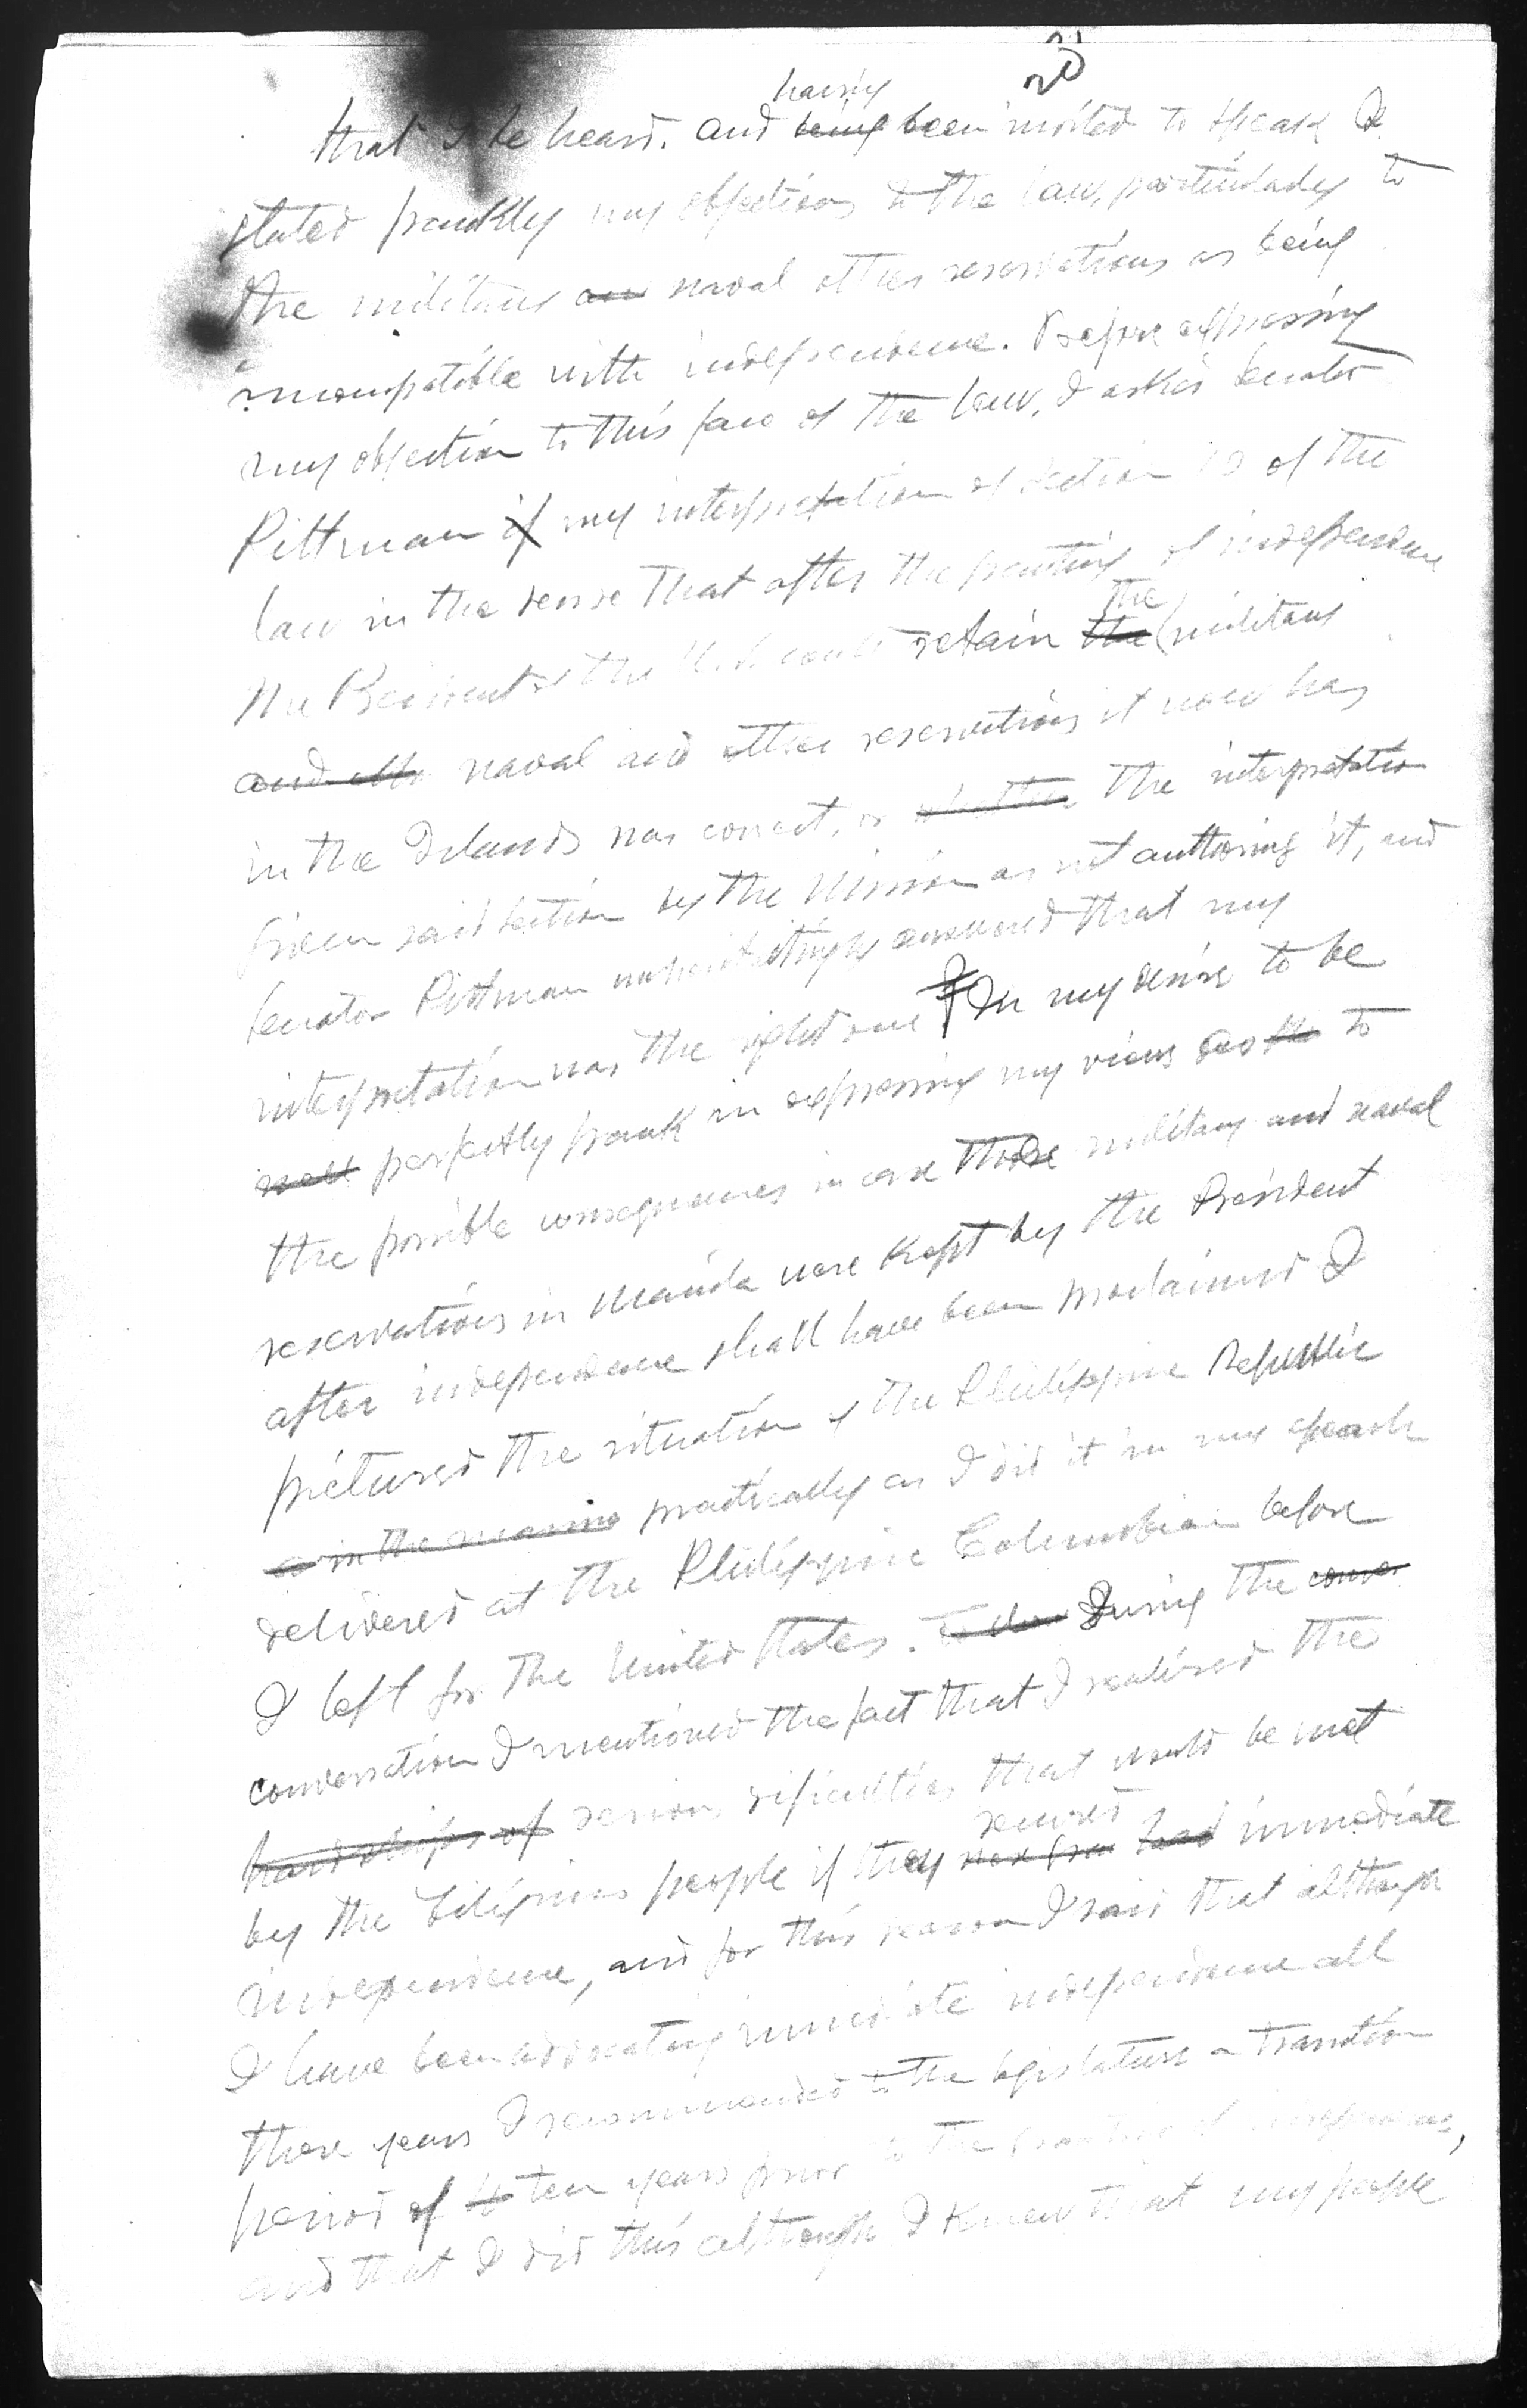 that I be heard. And having been invited to speak I
stated frankly my objections to the law, particularly to
the military naval other reservations as being
incompatible with independence. Before expressing
my objection to this face of the law, I asked Senator
Pittman if my interpretation of Section 10 of the
law in the sense that after the granting of independence
the President of the U.S. could retain the military
naval and other reservations it now has
in the Islands was correct, or the interpretation
given said section by the Mission as not authorising it, and
Senator Pittman unhesitatingly answered that my
interpretation was the right one. In my desire to be
perfectly frank in expressing my views as to
the possible consequences in case those military and naval
reservations in Manila were kept by the President
after independence shall have been proclaimed I
pictured the situation of the Philippine Republic
practically as I did it in my speech
delivered at the Philippine Columbian before
I left for the United States. During the
conversation I mentioned the fact that I realized the
serious dificulties that would be met
by the Filipino people if they secured immediate
independence, and for this reason I said that although
I have been advocating immediate independence all
these years I recommended to the legislature a transition
period of ten years prior to the granting of independence,
and that I did this although I knew that my people